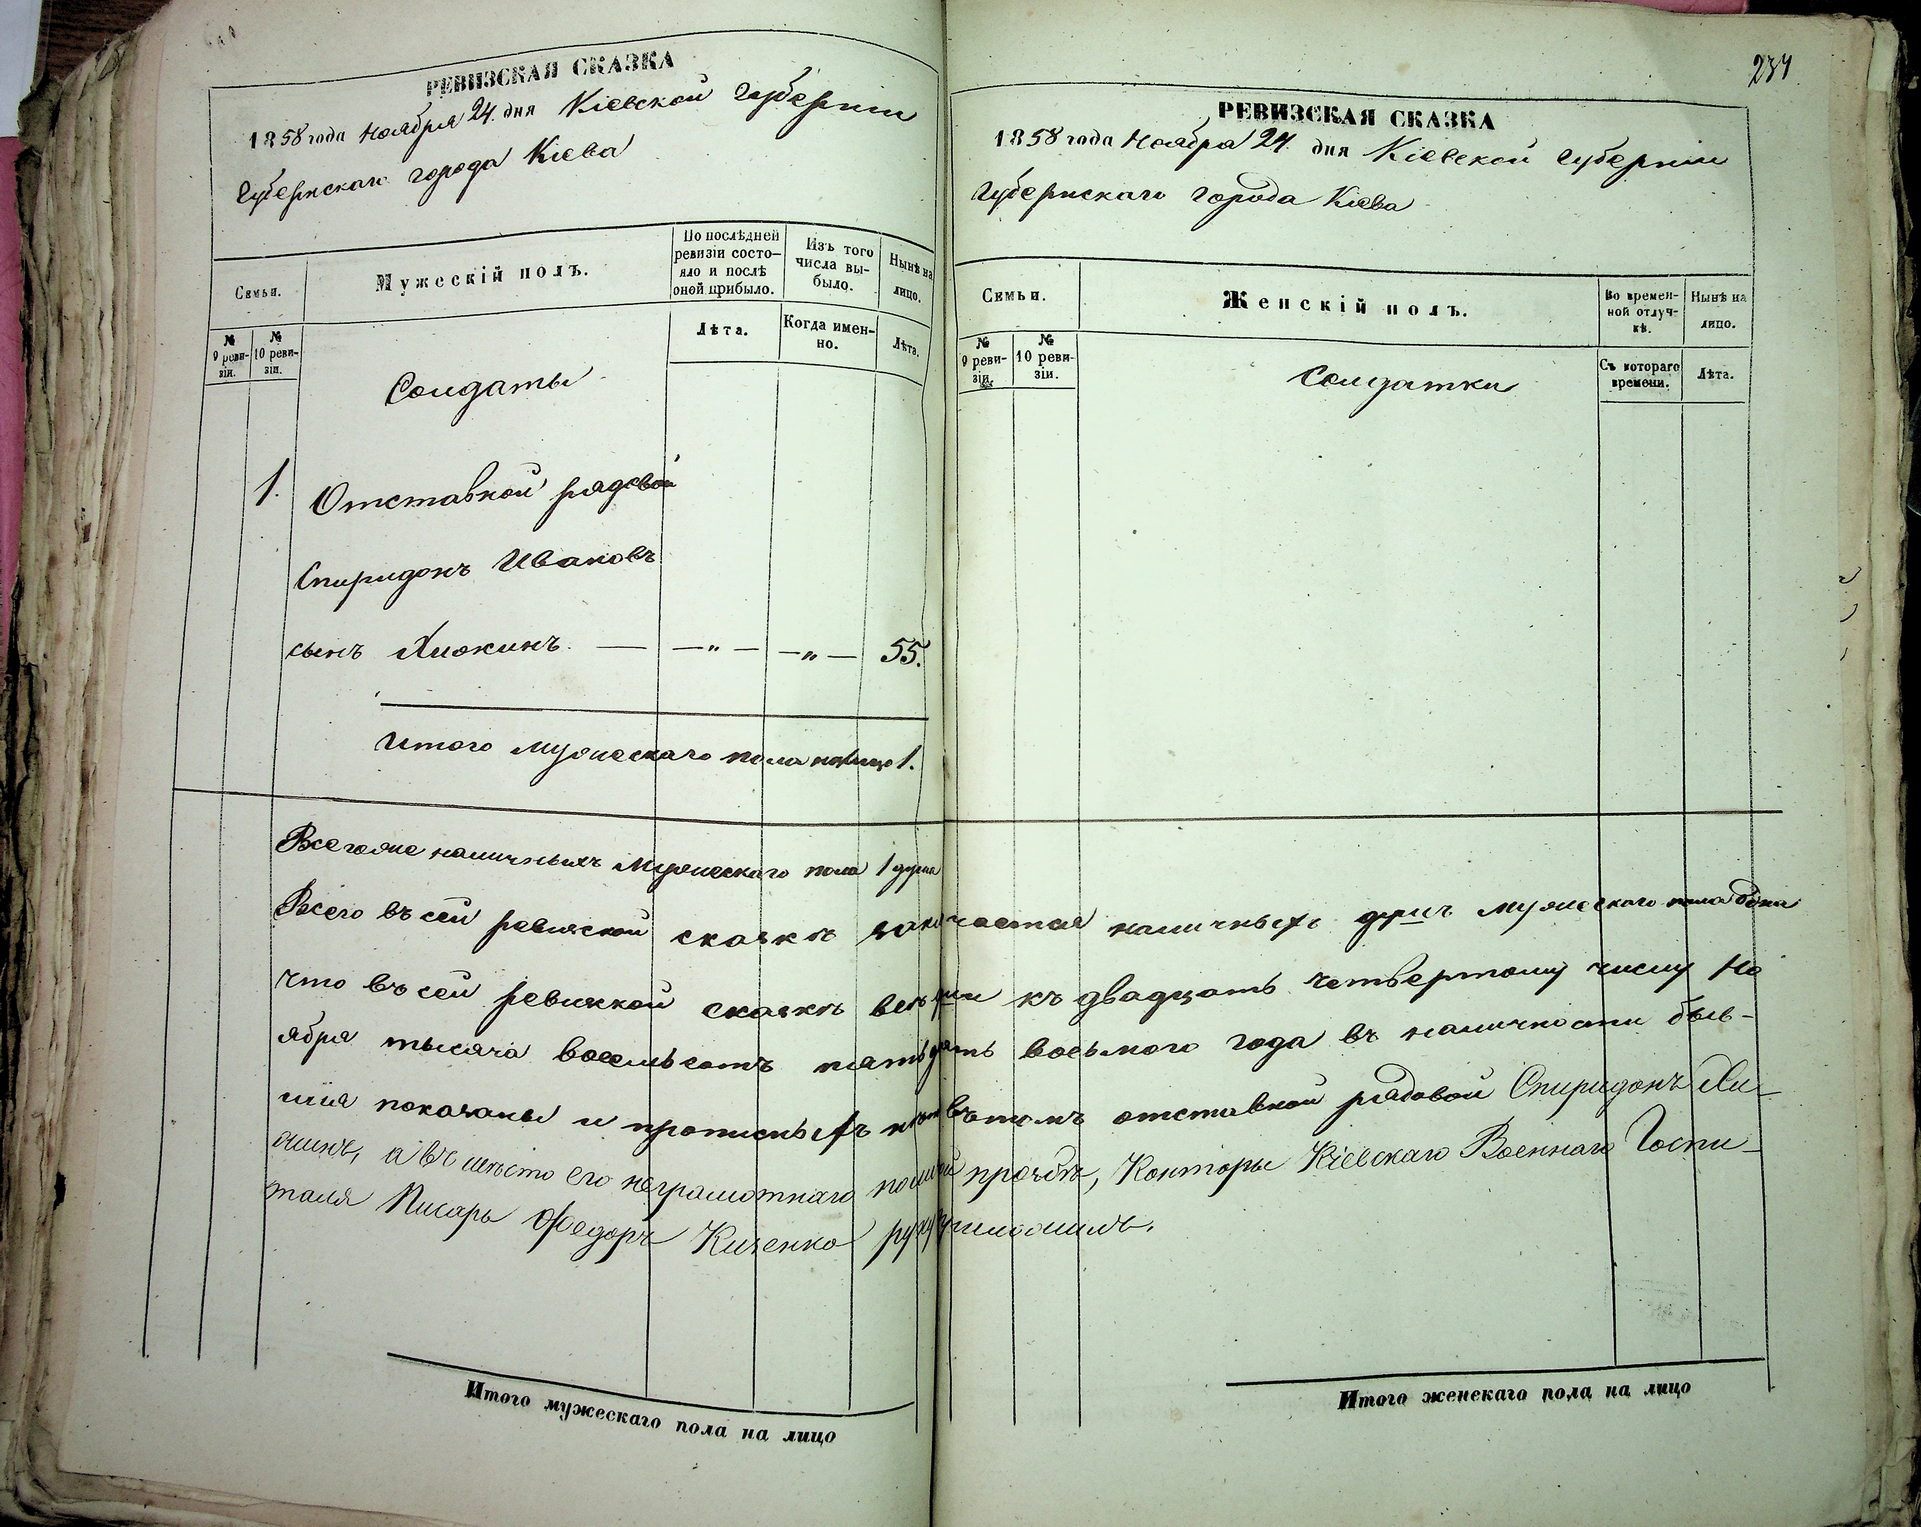 РЕВИЗСКАЯ СКАЗКА
1858 года Ноября 24 дня Кіевской Губерніи
Губернскаго города Кіева
Семьи.
Мужескій полъ.
По послѣдней ревизіи состо-яло и послѣ оной прибыло.
Изъ того числа вы-было.
Нынѣ на лицо.
№ 9 реви-зіи.
№ 10 реви-зіи.
Лѣта.
Когда имен-но.
Лѣта.
Солдаты
1. Отставной рядовой
Спиридонъ Ивановъ
сынъ — — „ — — „ — 55.
Итого Мужескаго пола налицо 1.
Всего же наличныхъ Мужескаго пола 1 душа
РЕВИЗСКАЯ СКАЗКА
237
1858 года Ноября 24 дня Кіевской Губерніи
Губернскаго города Кіева
Семьи.
Женскій полъ.
Во времен-ной отлуч-кѣ.
Нынѣ на лицо.
№ 9 реви-зіи.
№ 10 реви-зіи.
Съ котораго времени.
Лѣта.
Солдатки
Всего въ сей ревизской сказкѣ наличныхъ душъ Мужескаго пола одна
Что въ сей ревизской сказкѣ всѣ души къ двадцать четвертому числу Но
ября тысяча восемьсотъ пятьдесятъ восьмого года въ наличности быв-
шія показаны и прописныхъ нѣтъ въ томъ отставной рядовой Спиридонъ
а вмѣсто его неграмотнаго по его прозьбѣ, Конторы Кіевскаго Военнаго Госпи-
таля Писарь Федоръ Кизенко руку приложилъ.
Итого мужескаго пола на лицо
Итого женскаго пола на лицо